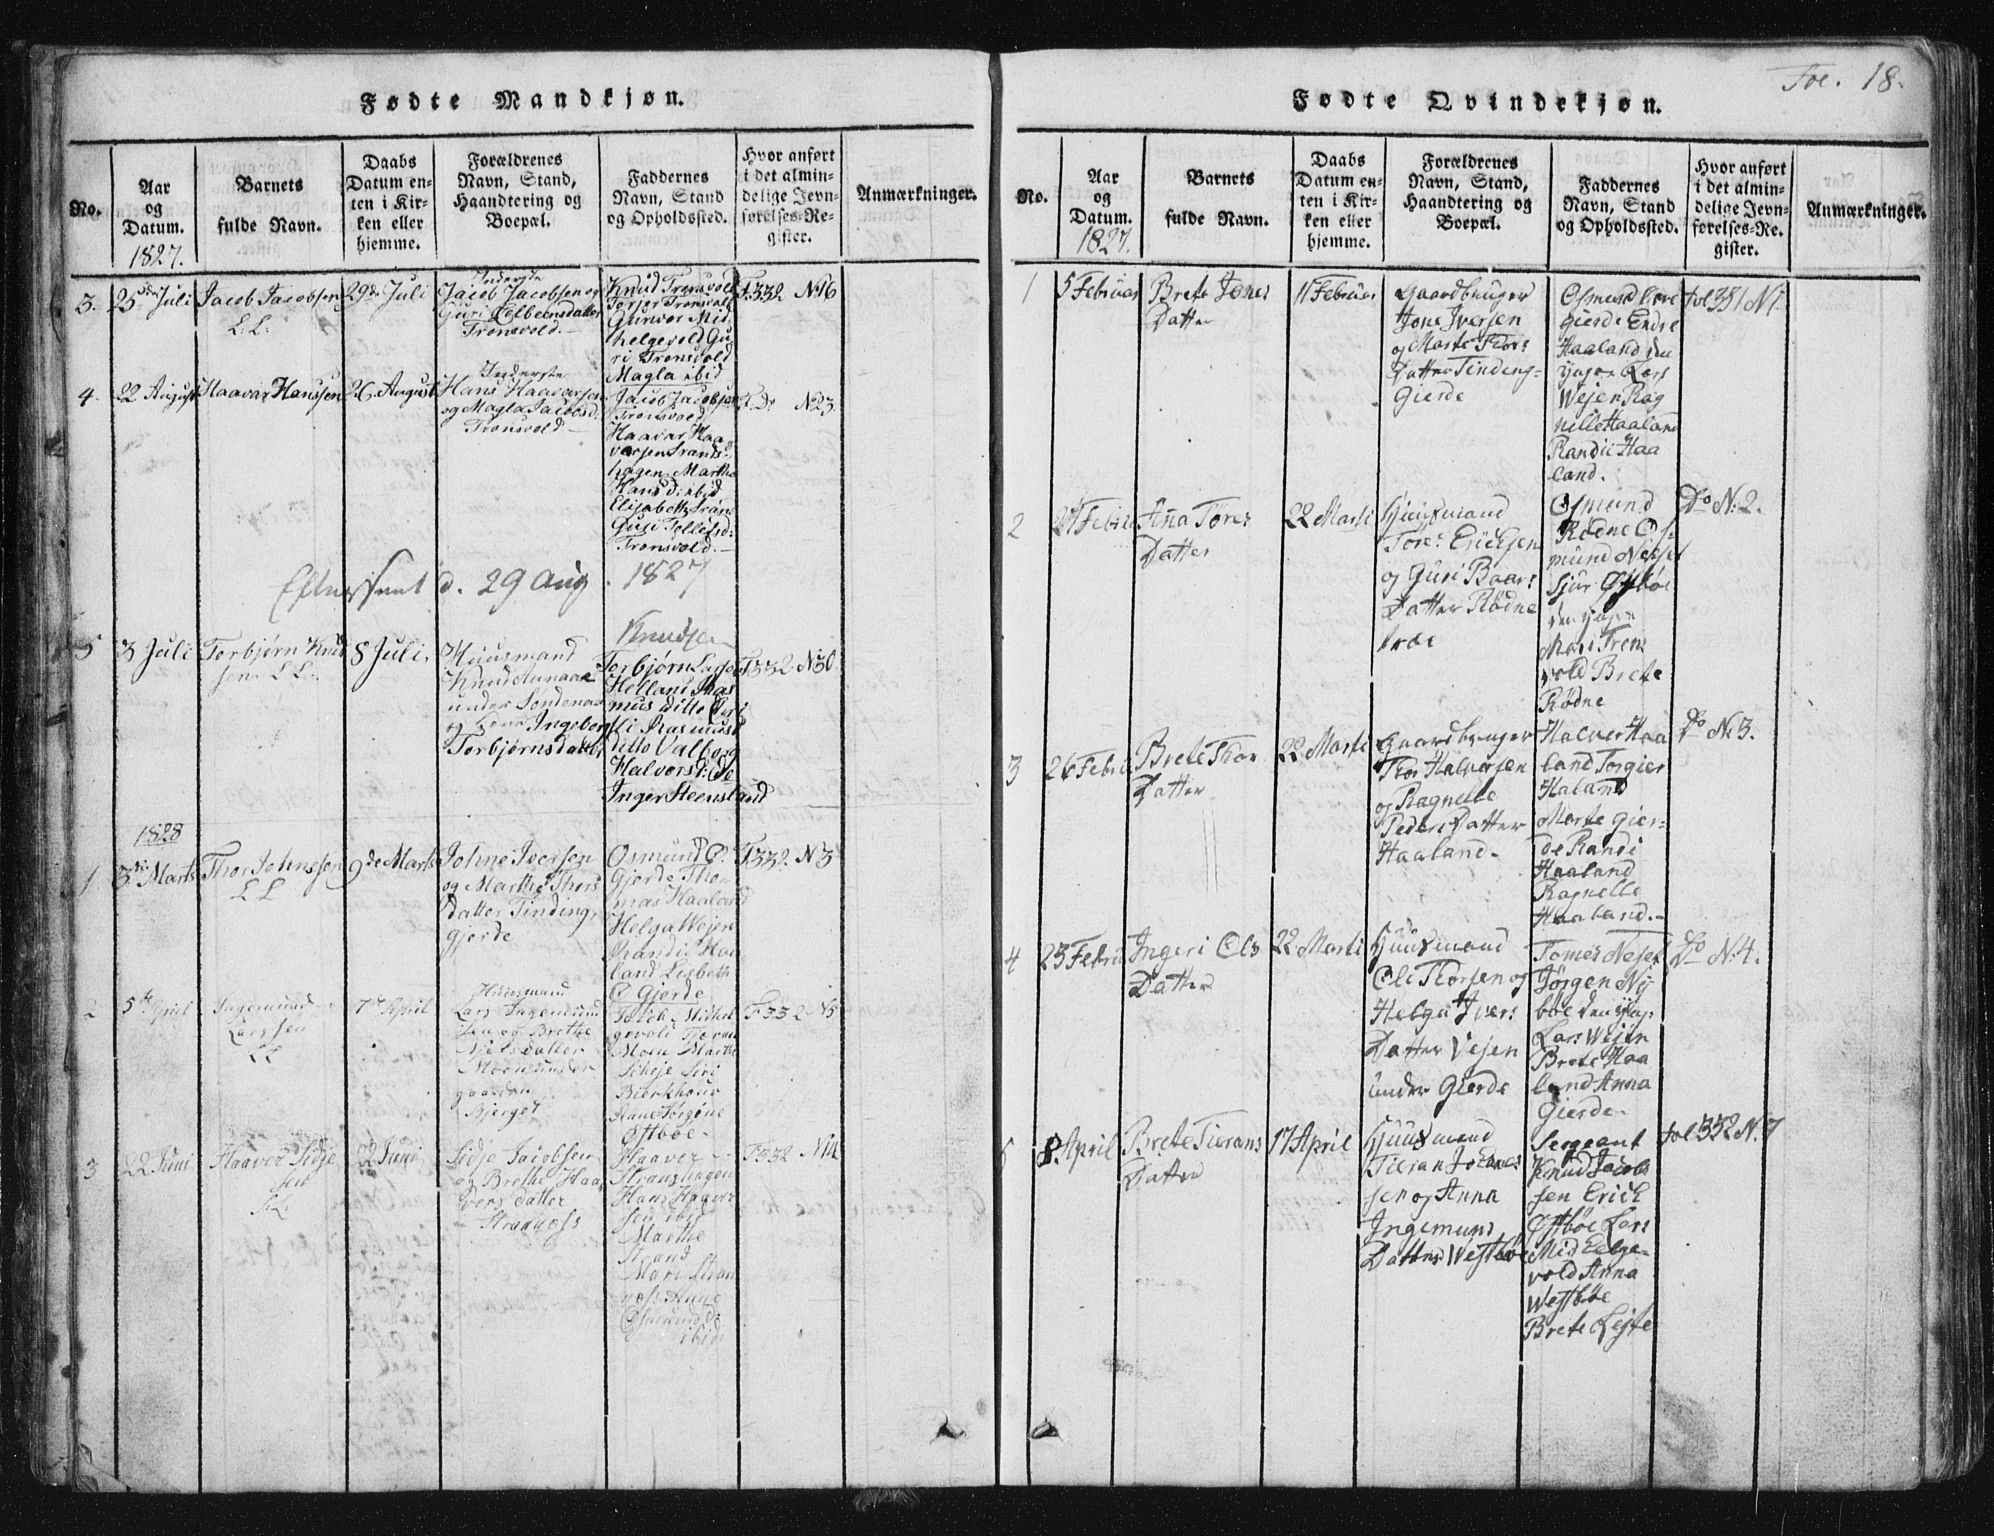 Fødte Mandkjøn.
No.
Aar
og
Datum.
1827.
Barnets
fulde Navn.
Daabs
Datum en-
ten i Kir-
ken eller
hjemme.
Forældrenes
Navn, Stand,
Haandtering og
Boepæl.
Faddernes
Navn, Stand
og Opholdssted.
Hvor anført
i det almin-
delige Jevn-
førelses-Re-
gister.
Anmærkninger.
3.
25de Juli
Jacob Jacobsen
L: L:
29de Juli
Inderste
Jacob Jacobsen og
Guri
Tronsvold.
Knud Tronsvold
Torger Tronsvold
Gunvor Mid
helgevold Gu
ri Tronsvold
Magla ibid
F.332 N16
4.
22 August
Haavar Hanssen
26 August
Inderste
Hans Haavarsen
og Magla Jacobsd:
Tronsvold.
Jacob Jacobsen
Tronsvold
Haavar Haa
varsen Strands
hagen Marthe
Hans d: ibid
Elisabeth
Guri Tollefsd:
Tronsvold.
Do N23
d. 29 Aug. 1827
Knudsen
5
3 Juli
Torbjørn Knud
sen L L.
8 Juli.
Huusmand
Knud
under Søndenaa
og Ingeborg
Torbjørnsdatter
Torbjørn Larsen
Helland Ras
mus ditto
Rasmusd
ditto Valborg
Halvorsd:
Inger Steensland
F332 N30
1828
1.
3de Marts
Thor Johnssen
L L
9de Marts
Johne Iversen
og Marthe Thors
datter Tinding,
Gjerde
Osmund O.
Gjerde Tho
mas Haaland
Helga Wejen
Randie Haa
land Lisbeth
O Gjerde
F332. N3
2
5te April
Ingemund
Larssen
L L
7de April
Huusmand
Lars Ingemund
sen og Brethe
Nielsdatter
under
gaarden
Bjerget
Mithel
gevold
Moen Marthe
Siri
Bierkhouv
Aane Jørgine
Østbøe.
F332 N5
3
22 Juni
Haaver Sidse
sen
L:L:
22 Juni
Sidse Jacobsen
og Brethe Haa
vers datter
Haaver
Hans Haaver
sen ibid
Marthe
Strand
Mari Stran
Anne
Osmund d:
ibid
F332 N14
Foe. 18.
Fødte Qvindekjøn.
No.
Aar
og
Datum.
1827.
Barnets
fulde Navn.
Daabs
Datum en-
ten i Kir-
ken eller
hjemme.
Forældrenes
Navn, Stand,
Haandtering og
Boepæl.
Faddernes
Navn, Stand
og Opholdssted.
Hvor anført
i det almin-
delige Jevn-
førelses-Re-
gister.
Anmærkninger.
1
5 Februar
Brete Jones
Datter
11 Februar
Gaardbruger
Jone Iversen
og Marte Thors
Datter Tinding-
Gierde
Osmund
gierde Endre
Haaland den
yngre Lars
Wejen Rag
nille Haaland
Randii Haa
land.
fol 351 N1
2
Febru
Ana Tores
Datter
22 Marti
Huusmand
Tore Ericksen
og Guri Baars
Datter Rødne
Osmund
Rødne Os-
mund Nesset
Sjur Østbøe
den yngre
Mari Trons
vold Brete
Rødne
Do N. 2.
3
26 Febru
Brete Thor
Datter
22 Marti
Gaardbruger
Thor Halversen
og Ragnelle
Peders Datter
Haaland.
Halver Haa
land Torgier
Haland
Marte Gier-
de Randi
Haaland
Ragnelle
Haaland.
Do N. 3.
4
23 Febru
Ingeri Ols
Datter
22 Marti
Huusmand
Ole Thorsen og
Helga Ivers
Datter Vejen
under Gierde
Tomes Neset
Jørgen Ny
bøe den yngr
Lars Wejen
Brete Haa
land Anna
Gierde.
Do N. 4.
8 April
Brete Tierans
Datter
17 April
Huusmand
Tieran Johannes
sen og Anna
Ingemund
Datter Westbøe
Sergeant
Knud Jacob
sen Erick
Østbøe Lars
Mid Helge-
vold Anna
Westbøe
Brete Lejte
fol 352 N. 7